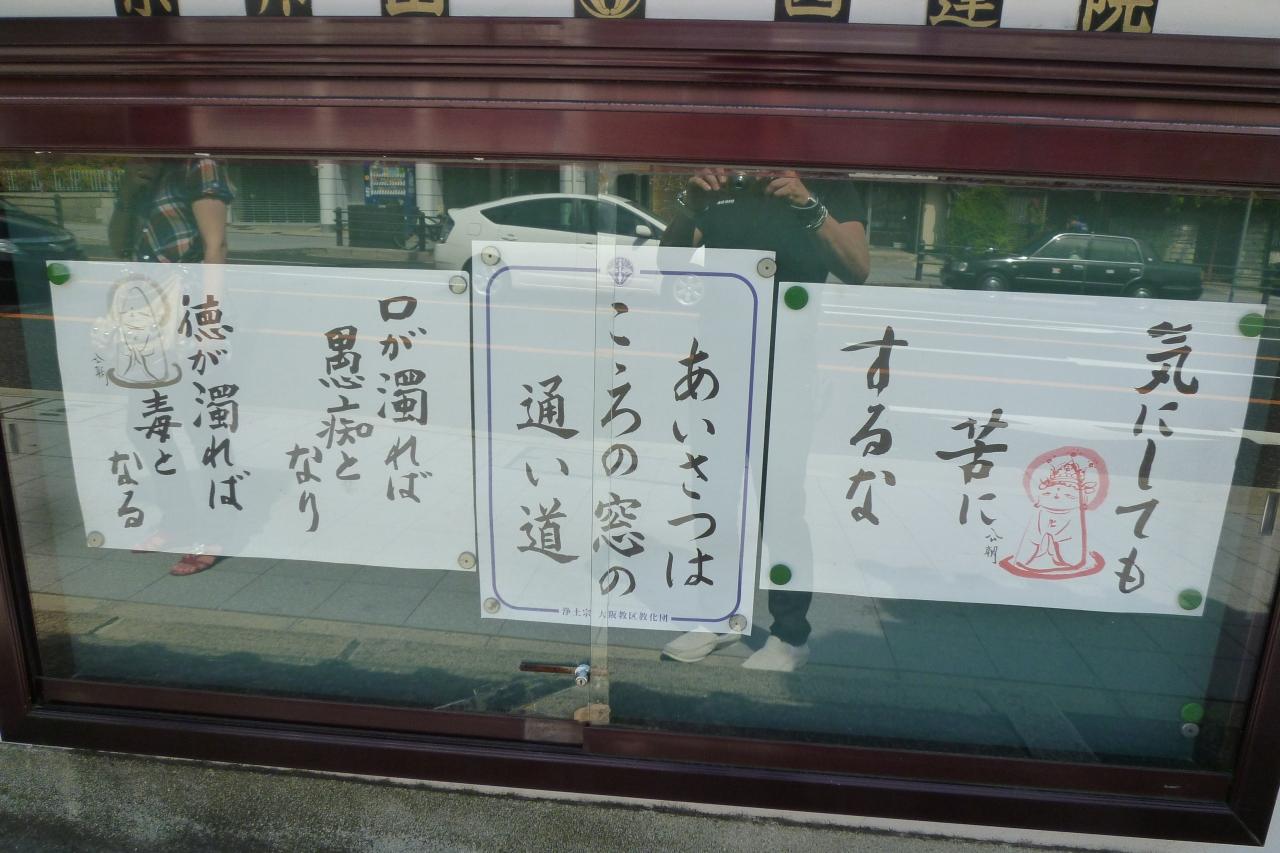 気にしても
苦に
するな
あいさつは
こころの窓の
通い道
浄土宗 大阪教区教化団
口が濁れば
愚痴と
なり
徳が濁れば
毒と
なる